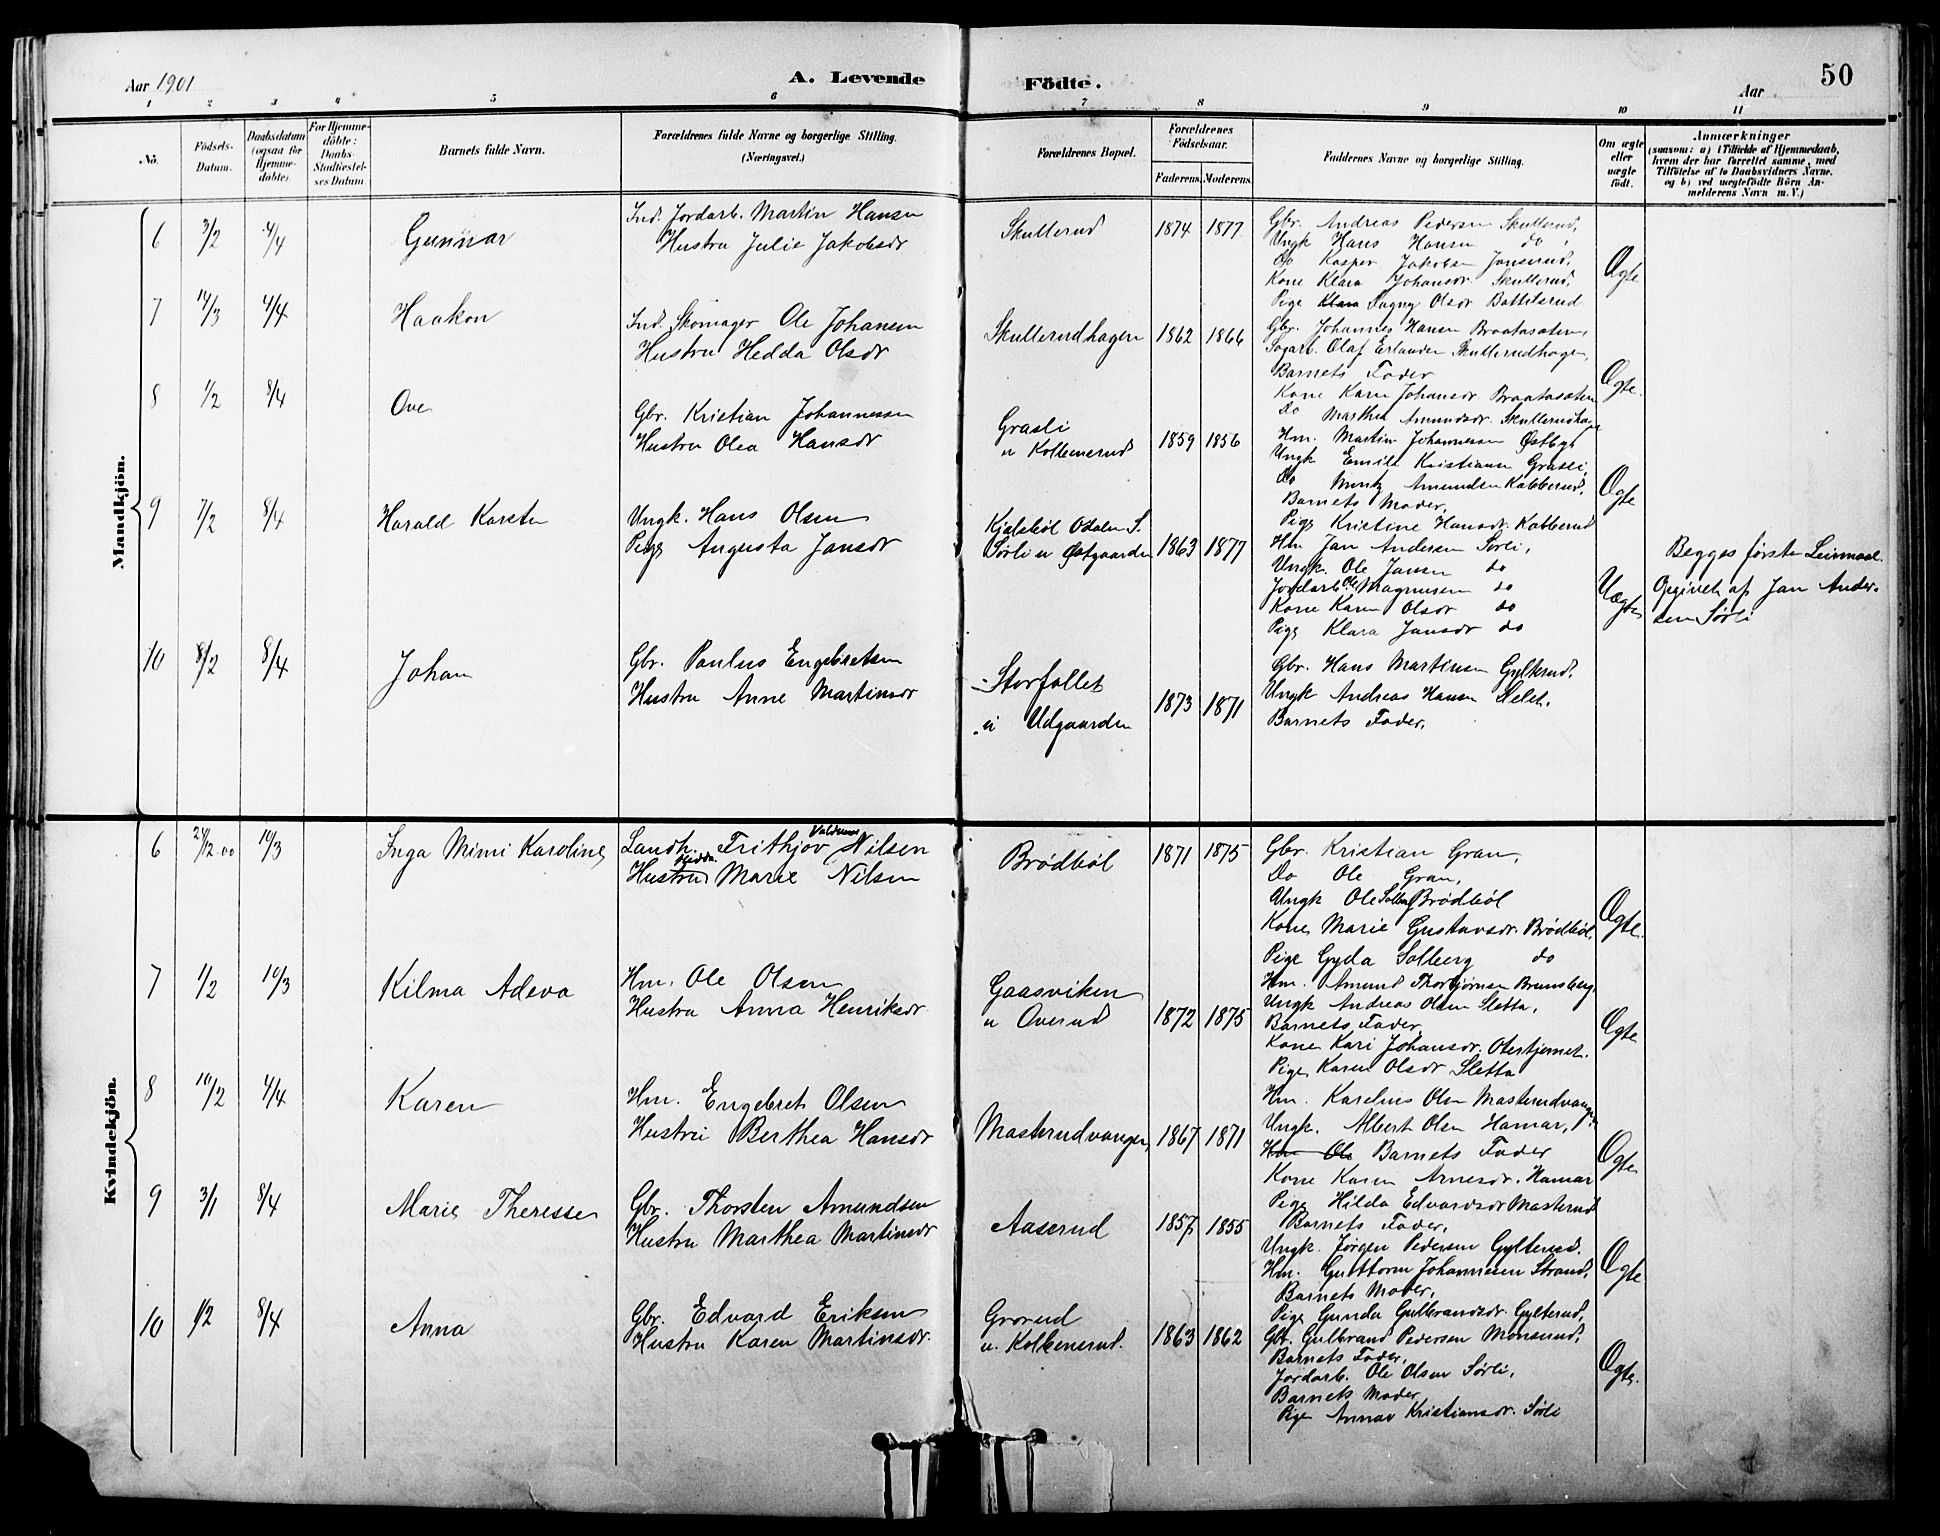 Aar 1901
A. Levende Födte.
Aar
50
1 2 3 4 5 6 7 8 9 10 11
No.
Födsels-Datum.
Daabsdatum (ogsaa for Hjemme-döbte).
For Hjemme-döbte: Daabs-Stadfæstel-ses Datum
Barnets fulde Navn.
Forældrenes fulde Navne og borgerlige Stilling. (Næringsvei.)
Forældrenes Bopæl.
Forældrenes Födselsaar.
Faderens. Moderens.
Faddernes Navne og borgerlige Stilling.
Om ægte eller uægte født.
Anmærkninger
(saasom: a) i Tilfælde af Hjemmedaab, hvem der har forrettet samme, med Tilföielse af to Daabsvidners Navne, og b) ved uægtefödte Börn An-melderens Navn m. V.)
Mandkjön.
6 3/2 4/4 Gunnar
Ind. Jordarb. Martin Hansen
Hustru Julie Jakobsdr
Skullerud 1874 1877
Gbr. Andreas Pedersen Skullerud,
Ungk Hans Hansen do,
Do Kasper Jakobsen Jonserud,
Kone Klara Johansdr. Skullerud,
Pige Klara Dagny Olsdr Battilsrud
Ægte
7 14/3 4/4 Haakon
Ind. Skomager Ole Johansen
Hustru Hedda Olsdr
Skullerudhagen 1862 1866
Gbr. Johannes Hansen Braatasæteren,
Sagarb. Olaf Erlandsen Skullerudhagen,
Barnets Fader
Kone Karen Johansdr. Braatasæteren
Do Marthea Amundsdr. Skullerudhagen
Ægte.
8 1/2 8/4 Ove
Gbr. Kristian Johannessen
Hustru Olea Hansdr
Grasli
u Kolbenerud 1859 1856
Hm. Martin Johannessen Østby,
Ungk Emill Kristiansen Grasli,
Do Amundsen Kabberud,
Barnets Moder,
Pige Kristine Hansdr. Kabberud
Ægte
9 7/2 8/4 Harald Karsten
Ungk. Hans Olsen
Pige Augusta Jansdr
Kjølebøl Odalen S.
Sørli u Østgaarden 1863 1877
Hm Jan Andersen Sørli,
Ungk. Ole Jansen do
Jordarb. Ole Magnusen do
Kone Karen Olsdr do
Pige Klara Jansdr do
Uægte
Begges første Leiermaal.
Opgivet af Jan Ander-
sen Sørli
10 8/2 8/4 Johan
Gbr. Paulus Engebretsen
Hustru Anne Martinsdr
Storfallet
u Udgaarden 1873 1871
Gbr. Hans Martinsen Gylterud.
Ungk Andreas Hansen Slett.
Barnets Fader.
Kvindekjön.
6 24/12 00 10/3 Inga Mimi Karoline
Landh. Frithjov Valdemar Nilsen
Hustru Hedda Marie Nilsen
Brødbøl 1871 1875
Gbr. Kristian Gran,
Do Ole Gran,
Ungk Ole Solberg Brødbøl
Kone Marie Gustavsdr. Brødbøl,
Pige Gyda Solberg do
Ægte.
7 1/2 10/3 Kilma Adeva
Hm. Ole Olsen
Hustru Anna Henriksdr.
Gaasviken
u Overud 1872 1875
Hm. Amund Thorbjørnsen Brunsberg,
Ungk Andreas Olsen Sletta,
Barnets Fader,
Kone Kari Johansdr. Oterstjernet.
Pige Karen Olsdr Sletta
Ægte
8 10/2 4/4 Karen
Hm. Engebret Olsen
Hustru Berthea Hansdr
Masterudvangen, 1867 1871
Hm. Karelius Olsen Masterudvangen,
Ungk. Albert Olsen Hamar,
Hm Ole Barnets Fader
Kone Karen Arnesdr. Hamar
Pige Hilda Edvardsdr Masterud
Ægte
9 3/1 8/4 Marie Theresse
Gbr. Thorsten Amundsen
Hustru Marthea Martinsdr
Aaserud 1857 1855
Barnets Fader,
Ungk. Jørgen Pedersen Gylterud.
Hm. Guttorm Johannesen Strand,
Barnets Moder,
Pige Gunda Gulbrandsdr. Gylterud,
Ægte
10 1/2 8/4 Anna
Gbr. Edvard Eriksen
Hustru Karen Martinsdr.
Grorud
u. Kolbenerud. 1863 1862
Gbr. Gulbrand Pedersen Monserud,
Barnets Fader,
Jordarb. Ole Olsen Sørli,
Barnets Moder
Pige Anna Kristiansdr. Sørli
Ægte.